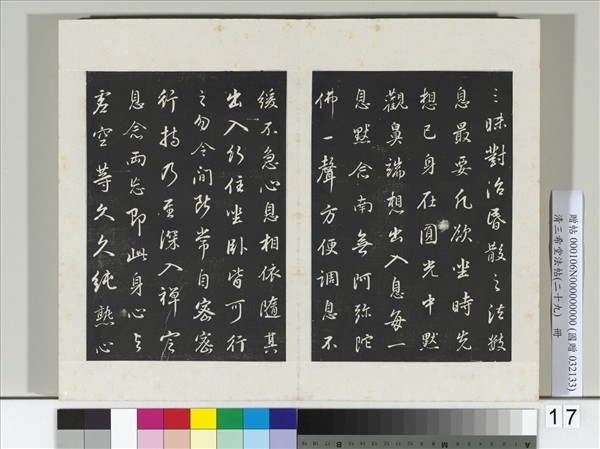 三昧對治昏散之法數
息最要凡欲坐時先
想己身在圓光中默
觀鼻端想出入息每一
息默念南無阿彌陀
佛一聲方便調息不
緩不急心息相依隨其
出入行住坐卧皆可行
之勿令間斷常自密密
行持乃至深入禪定
息念兩忘即此身心與
虛空等久久純熟心
贈帖 000106N000000000 (國贈 032133)
清三希堂法帖(二十九) 冊
17